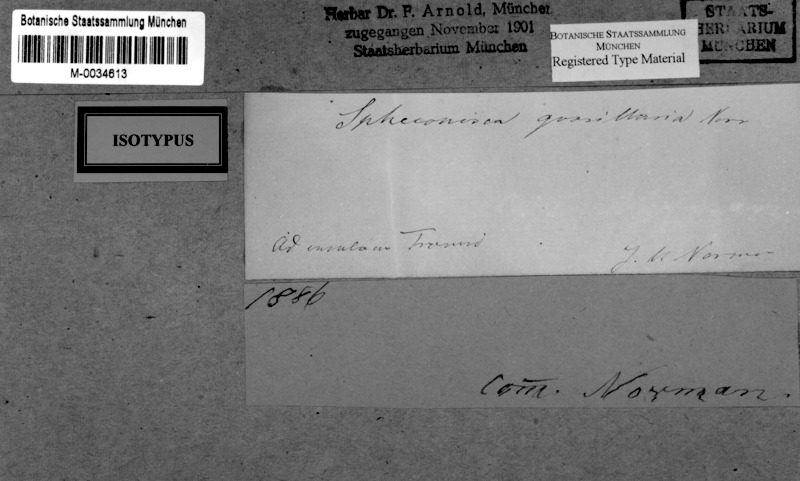 Botanische Staatssammlung München
M-0034613
Herbar Dr. F. Arnold, München
zugegangen November 1901
Staatsherbarium München
BOTANISCHE STAATSSAMMLUNG
MÜNCHEN
Registered Type Material
STAATS-
HERBARIUM
MÜNCHEN
ISOTYPUS
Spheconisca Norm
Ad insulam Tromsö
J. M. Norman
1886
Com. Norman.